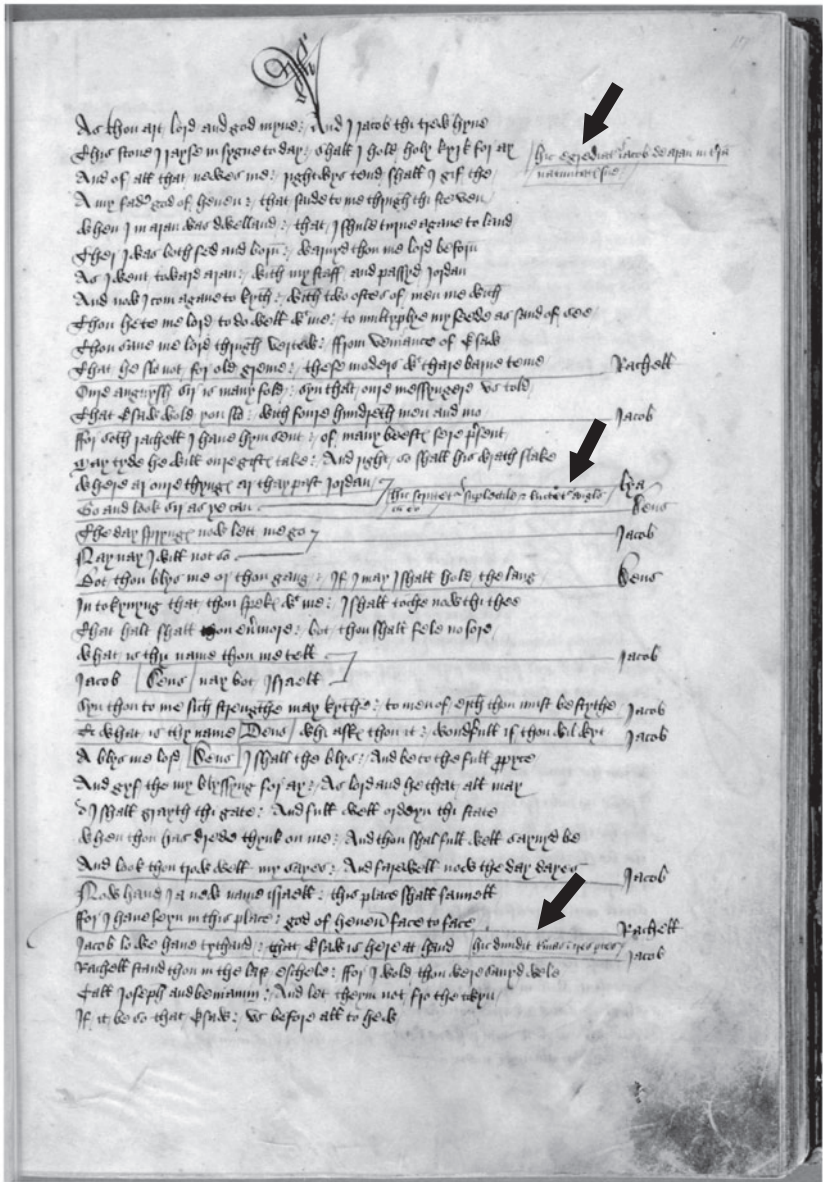 As thou art lord and god myne : And I Jacob thi trew hyne
This stone I rayse in sygne to day : shall I hold holy kyrk for ay
hic egrediatur Jacob de aran in terra
natiuitatis sue
And of all that newes me : rightwys tend shall I gif the
A my fader god of heuen : that saide to me thrugh thi steven
when I in aran was dwelland : that I shuld turne agane to land
Ther I was both fed and born : warnyd thou me lord beforn
As I went toward aran : with my staff and passyd Jordan
And now I com agane to kyth : with two ostes of men me with
Thou hete me lord to do well with me : to multyplye my seede as sand of see
Thou saue me lord thrugh vertew : ffrom veniance of Esaw
That he slo not for old greme : these moders with thare barne teme
Rachell
Oure anguysh sir is many fold : syn that oure messyngere vs told
That Esaw wold you slo : with foure hundreth men and mo
Jacob
ffor soth rachell I haue hym sent : of many beestes sere present
May tyde he will oure giftes take : And right so shall his wrath slake
where ar oure thynges ar thay past Jordan
lya
Go and look sir as ye can
hic scrutetur superlectile & luctetur angelus
cum eo
Deus
The day spryngys now lett me go
Jacob
Nay nay I will not so
Bot thou blys me or thou gang : If I may I shall hold the lang
Deus
In tokynyng that thou spekes with me : I shall toche now thi thee
That halt shall thou euermore : bot thou shall fele no sore
what is thy name thou me tell
Jacob
Jacob Deus nay bot Israell
Syn thou to me sich strengthe may kythe : to men of erth thou must be stythe
Jacob
& what is thy name Deus whi askes thou it : wonderfull if thou wil wyt
Jacob
A blys me lord Deus I shall the blys : And be to the full propyce
And gyf the my blyssyng for ay : As lord and he that all may
I shall grayth thi gate : And full well ordeyn thi state
when thou has drede thynk on me : And thou shal full well sauyd be
And look thou trow well my sayes : And farewell now the day dayes
Jacob
Now haue I a new name israell : this place shall fanuell
ffor I haue seyn in this place : god of heuen face to face
Rachell
Jacob lo we haue tythand : that Esaw is here at hand
hic diuidit turmas in tres partes
Jacob
Rachell stand thou in the last eschele : ffor I wold thou were sauyd wele
Call Joseph and beniamin : And let theym not fro the twyn
If it be so that Esaw : vs before all to hew